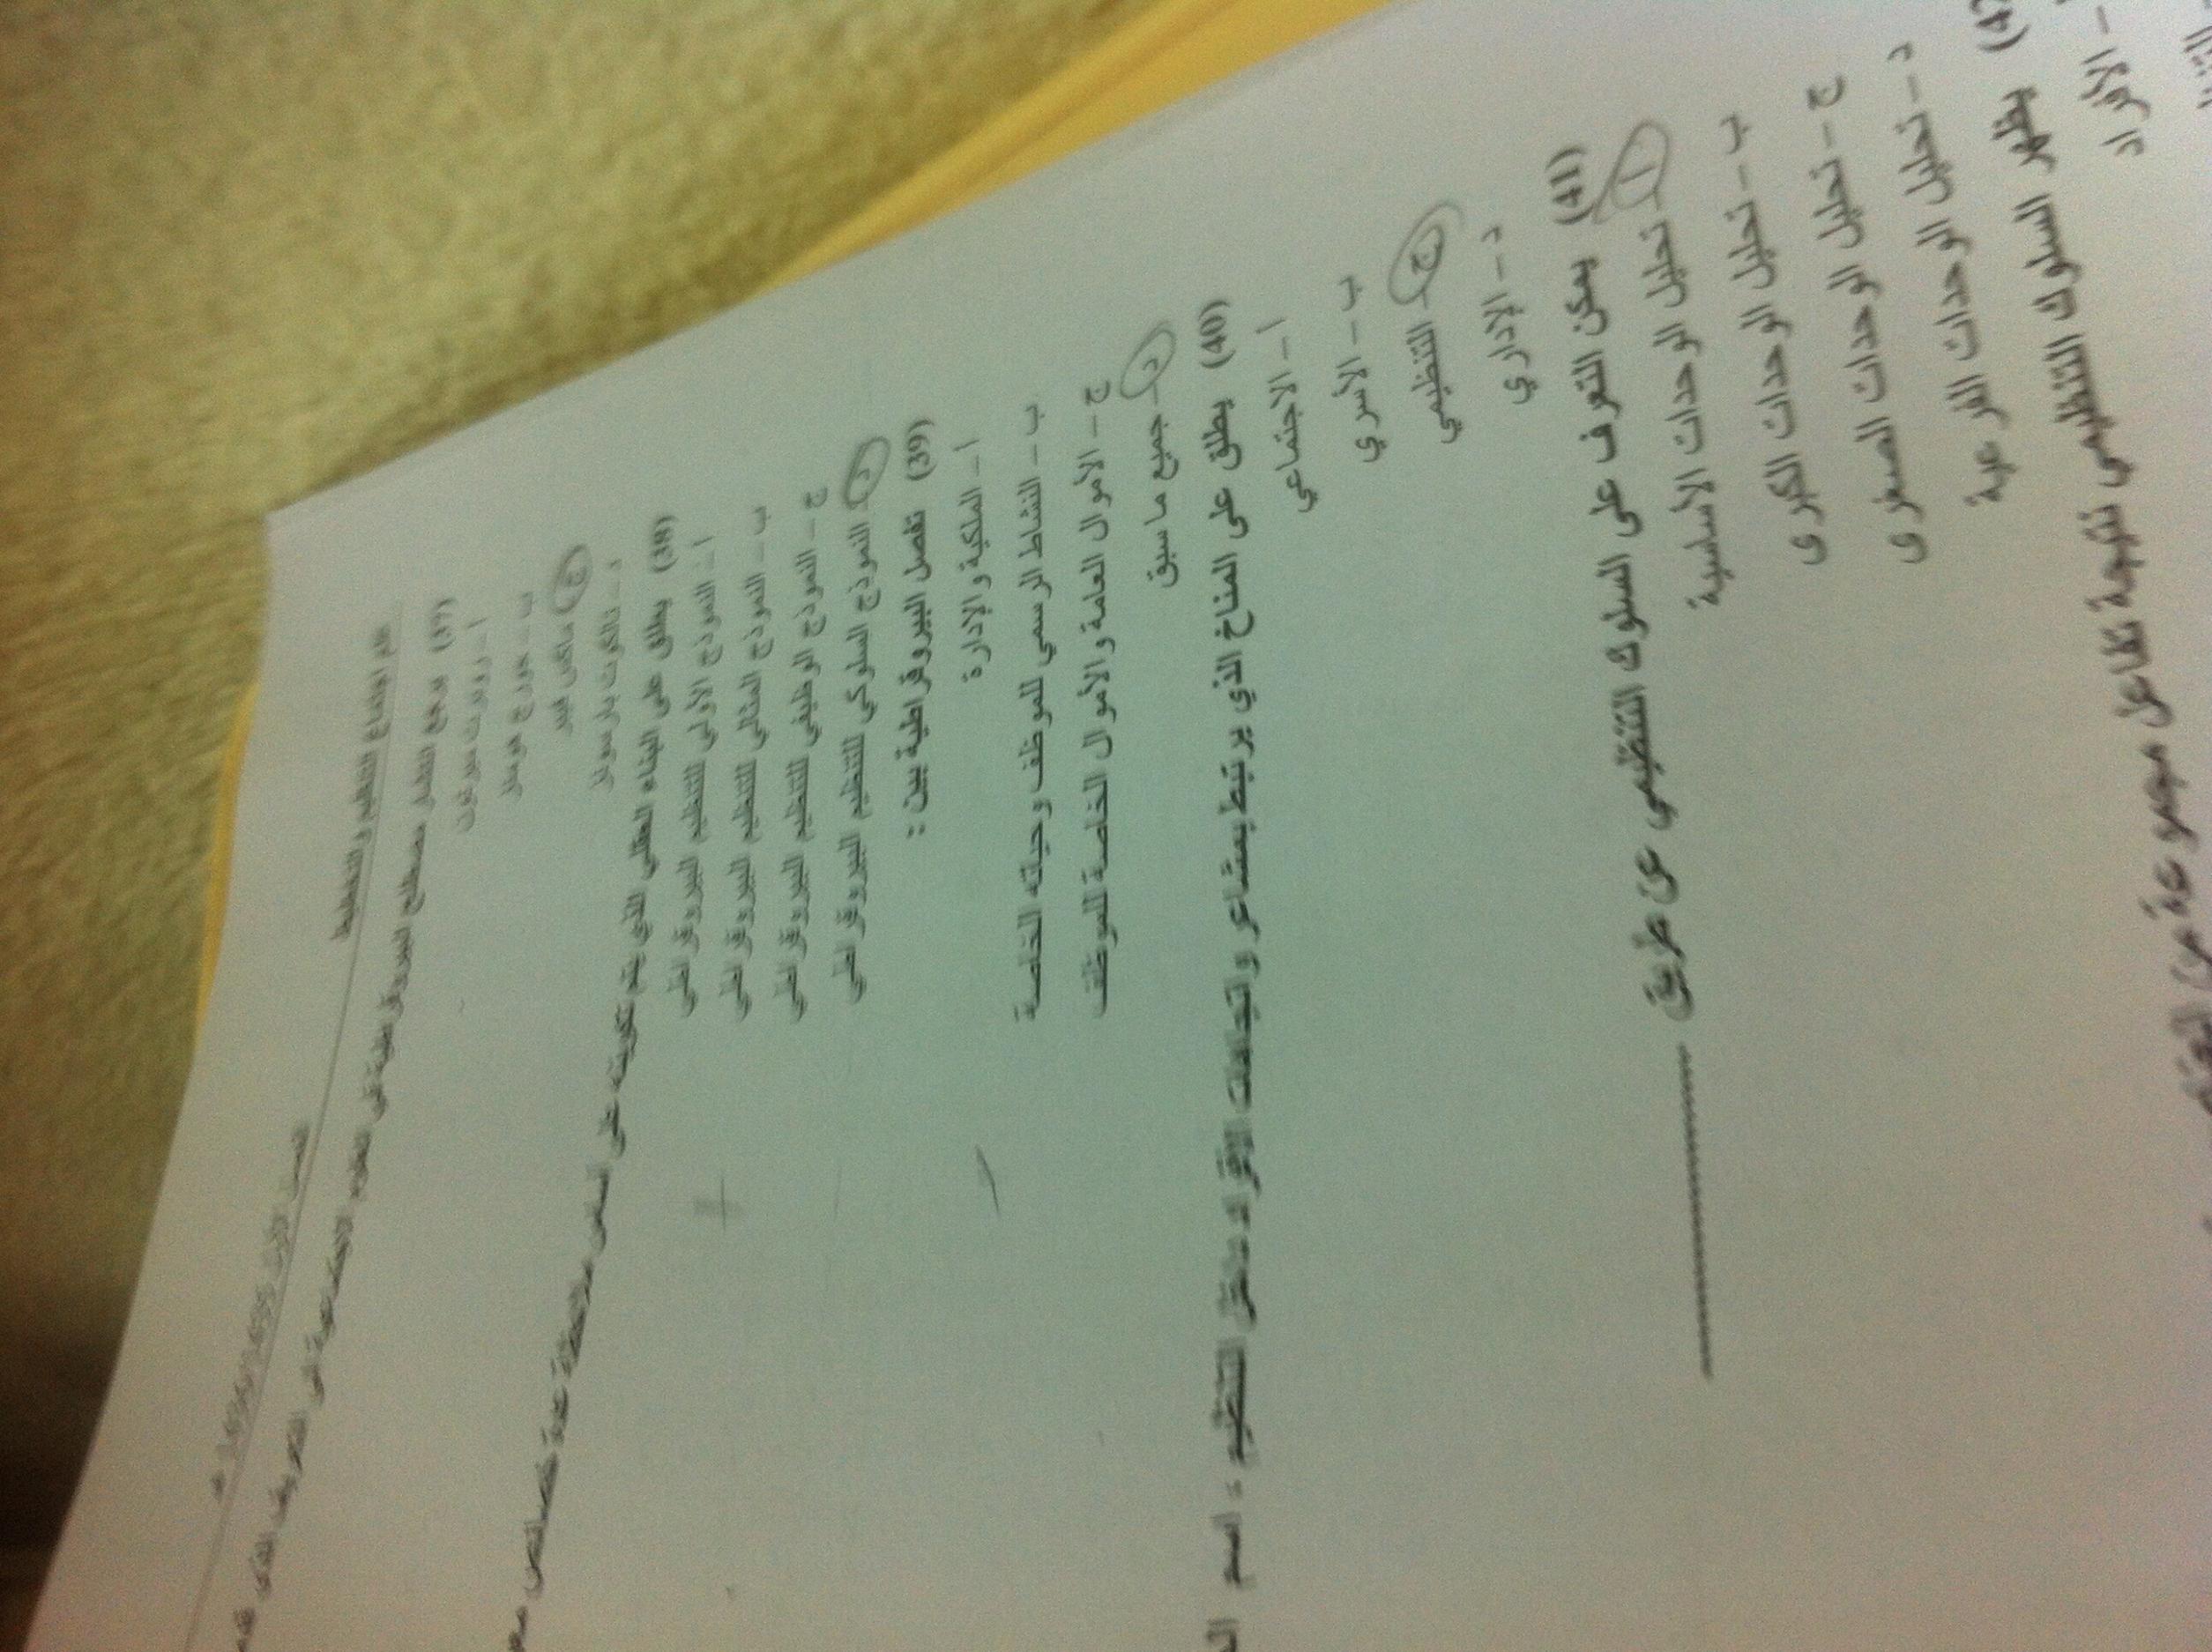 علم اجتماع التنظيم والتخطيط
الفصل الأول
(37) يرجع انتشار مصطلح البيروقراطية في العلوم الاجتماعية إلى التعريف الذي
أ – روبرت ميرتون
ب – جورج هومنز
ج – ماكس فيبر
د – تالكوت بارسونز
(38) يطلق على البناء العقلي الذي يتم تكوينه على أساس ملاحظة عدة خصائص
أ – النموذج الأولى للتنظيم البيروقراطي
ب – النموذج المثالي للتنظيم البيروقراطي
ج – النموذج الوظيفي للتنظيم البيروقراطي
د – النموذج السلوكي للتنظيم البيروقراطي
(39) تفصل البيروقراطية بين :
أ – الملكية والإدارة
ب – النشاط الرسمي للموظف وحياته الخاصة
ج – الأموال العامة والأموال الخاصة للموظف
د – جميع ما سبق
(40) يطلق على المناخ الذي يرتبط بمشاعر واتجاهات الأفراد داخل التنظيم ، اسم
أ – الاجتماعي
ب – الأسري
ج – التنظيمي
د – الإداري
(41) يمكن التعرف على السلوك التنظيمي عن طريق
أ – تحليل الوحدات الأساسية
ب – تحليل الوحدات الكبرى
ج – تحليل الوحدات الصغرى
د – تحليل الوحدات الفرعية
يظهر السلوك التنظيمي نتيجة تفاعل مجموعة من
– الأفراد